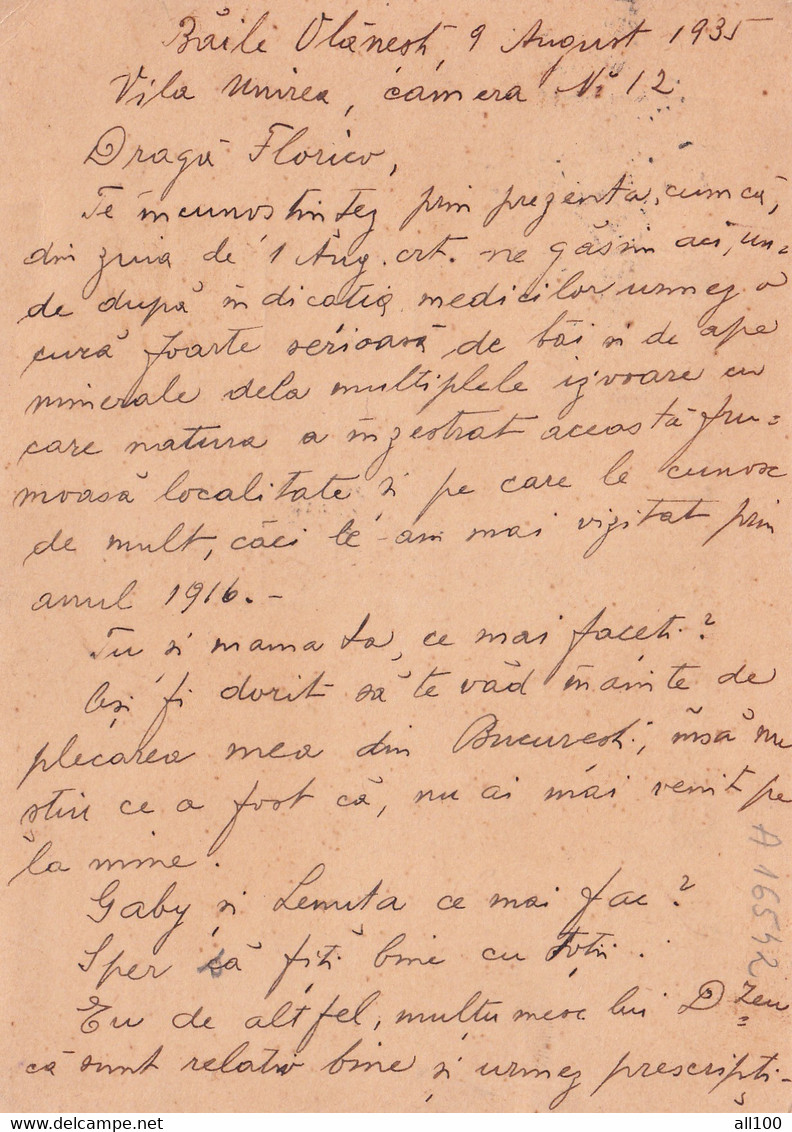 Băile Olănești, 9 August 1935
Vila Unirea, camera No 12.
Dragă Florico,
Te încunoștințez prin prezenta, cum că,
din ziua de 1 Aug. crt. ne găsim aci, un=
de după indicația medicilor urmez o
cură foarte serioasă de băi și de ape
minerale dela multiplele izvoare cu
care natura a înzestrat această fru=
moasă localitate și pe care le cunosc
de mult, căci le-am mai vizitat prin
anul 1916.-
Tu și mama ta, ce mai faceți?
Ași fi dorit să te văd înainte de
plecarea mea din București, însă nu
știu ce a fost că, nu ai mai venit pe
la mine.
Gaby și Lenuta ce mai fac?
Sper să fiți bine cu toții.
Eu de altfel, mulțumesc lui Dzeu
că sunt relativ bine și urmez prescripți-
A 16542
all100